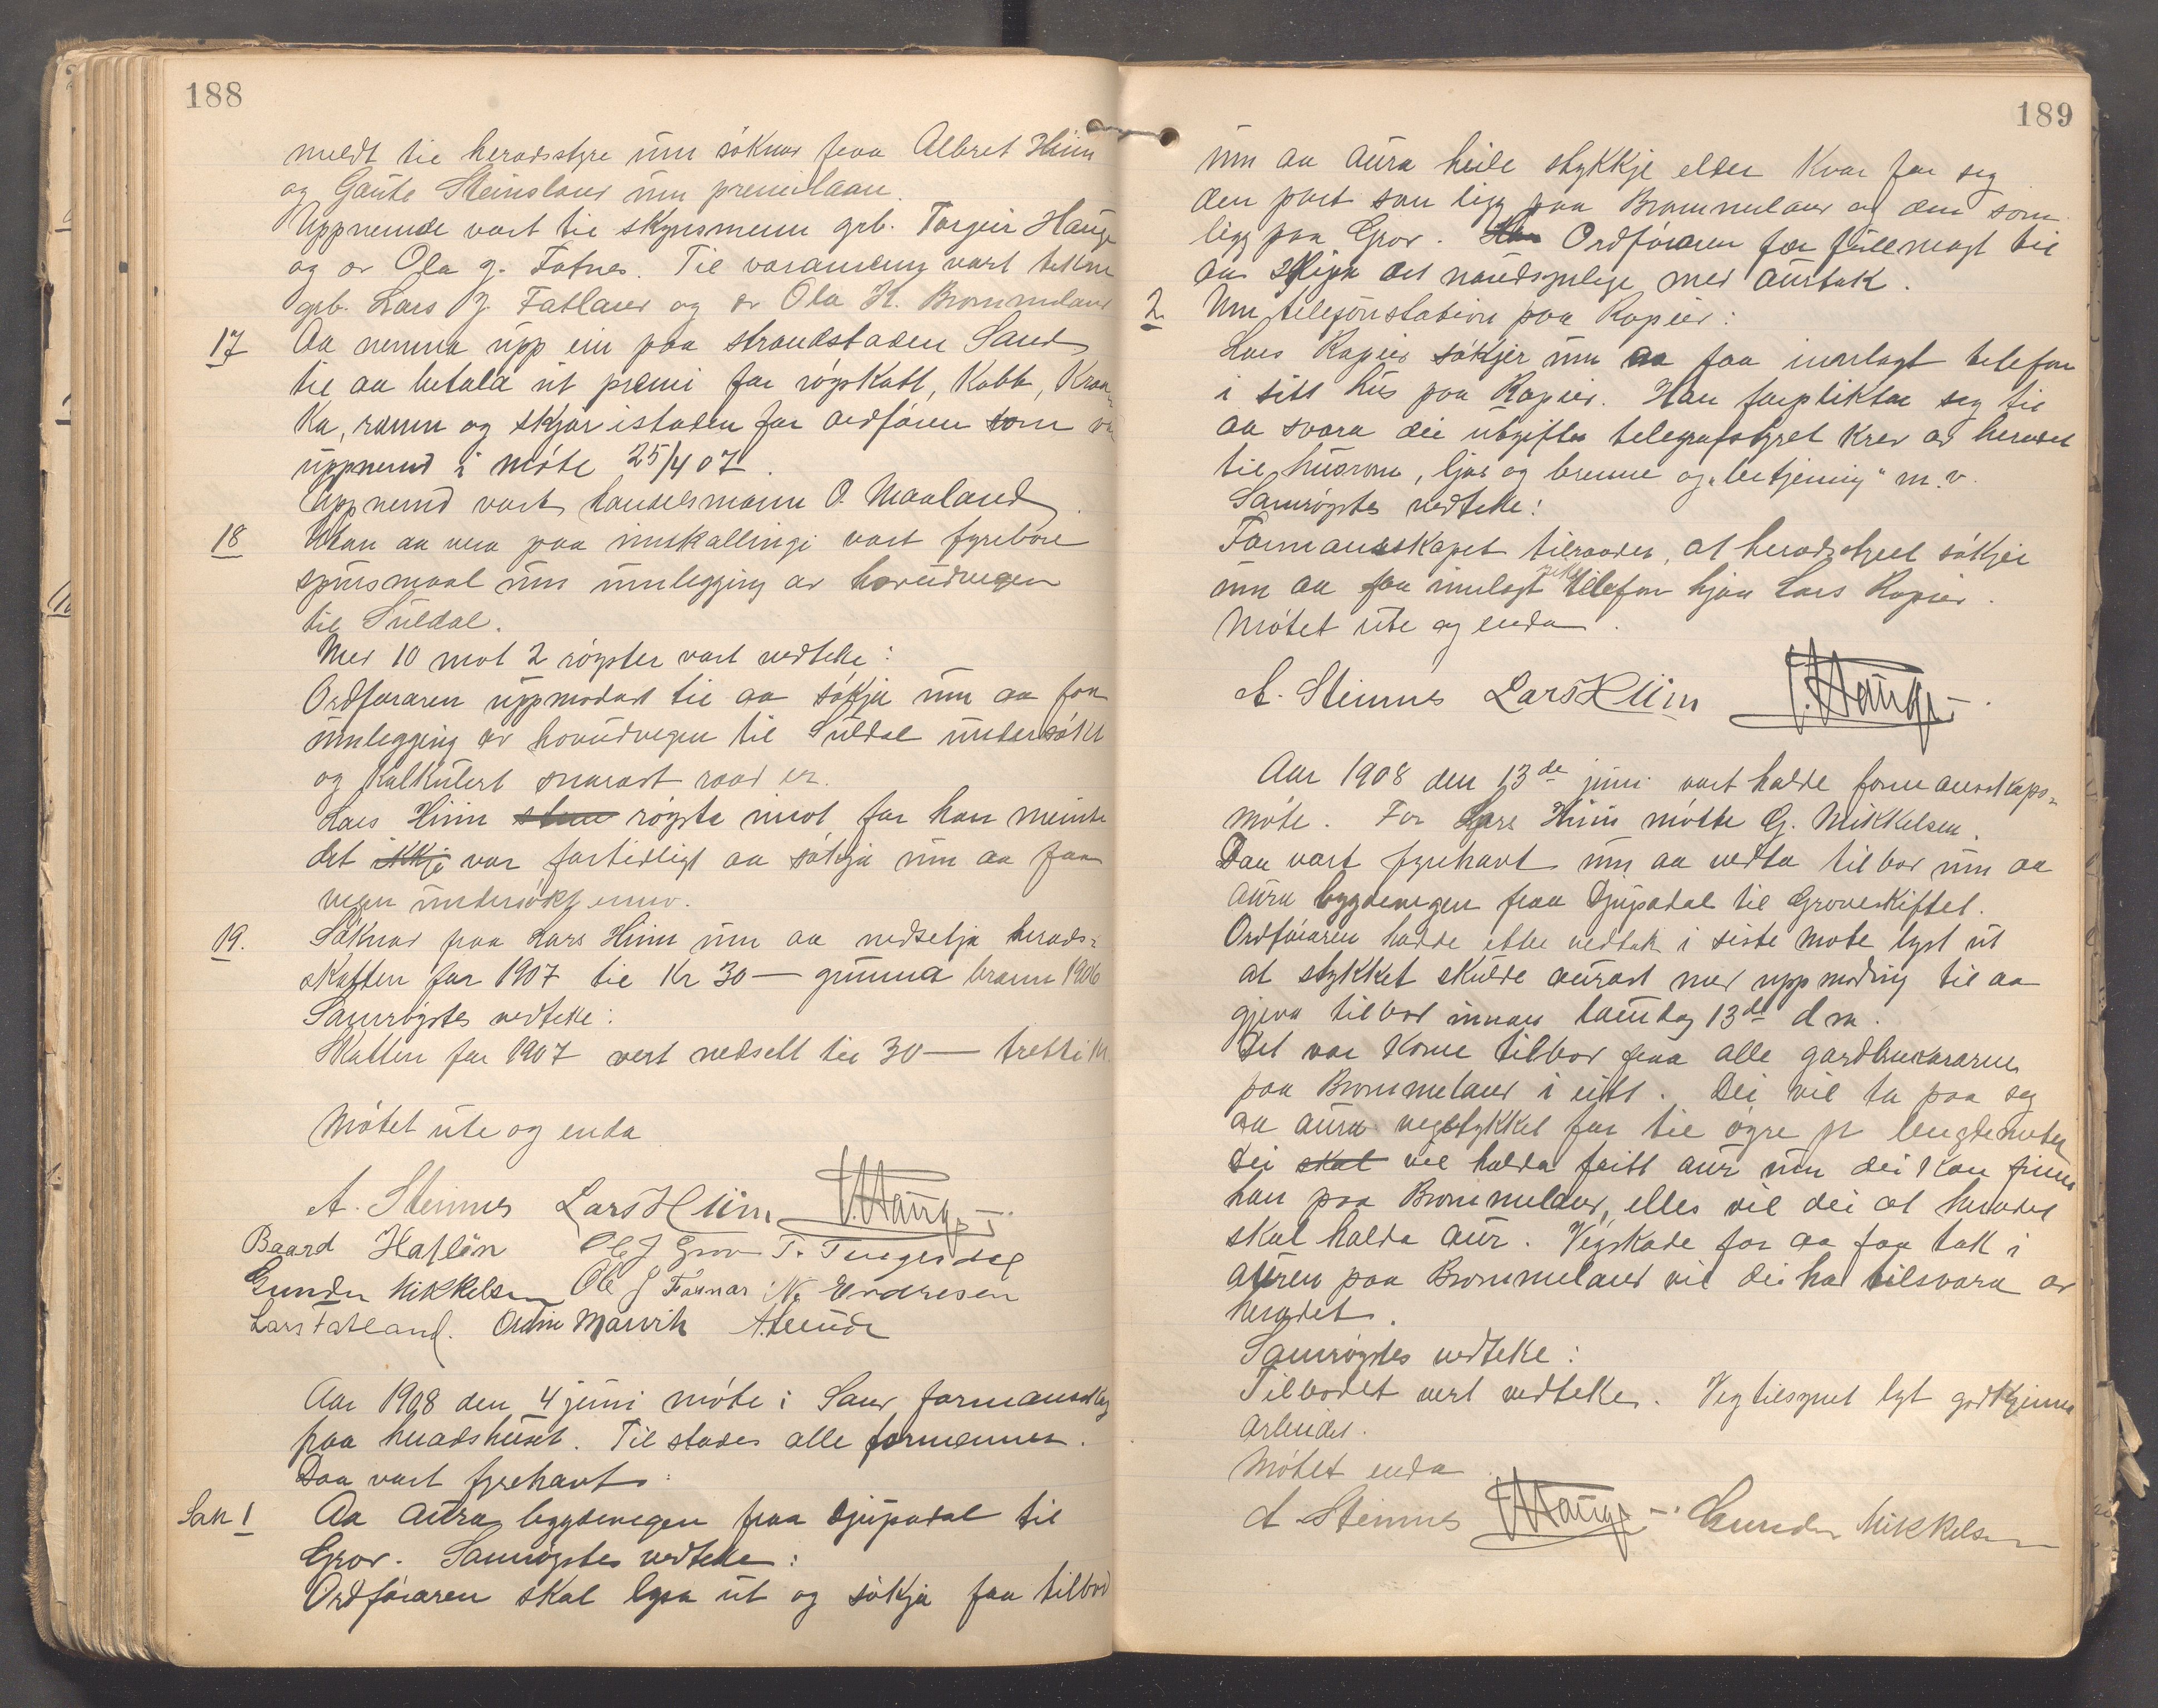 188
meldt til heradsstyre um søknad fraa Albret Hiim
og Gaute Steinsland um premilaan.
Uppnemde vart til skynsmenn grb. Torgeir Hauge
og av Ola G. Fatnes. Til varamenn vart tekne
grb. Lars J. Fatland og av Ola K. Brommeland
17 Aa nemna upp ein paa strandstaden Sand
til aa betala ut premi for røyskatt, Kobb, Kraa-
ka, ramn og skjor istaden for ordføraren som var
uppnemd i møte 25/4 07.
Uppnemd vart handelsmann O. Maaland.
18 Utan aa vera paa innkallingi vart fyrebore
spursmaal um umlegging av hovudvegen
til Suldal.
Med 10 mot 2 røyster vart vedteke:
Ordføraren uppmodast til aa søkja um aa faa
umlegging av hovudvegen til Suldal undersøkt
og kalkulert snarast raad er.
Lars Hiim røysta imot for han meinte
det ikkje var fortidligt aa søkja um aa faa
vegen undersøkt enno.
19. Søknad fraa Lars Hiim um aa nedsetja herads-
skatten for 1907 til Kr 30 — grunna brann 1906
Samrøystes vedteke:
Skatten for 1907 vert nedsett til 30 — tretti kr.
Møtet ute og enda
A. Steinnes Lars Hiim T. Hauge
Baard Halløn Ole J Grov T. Tengesdal
Gunder Mikkelsen Ole J Fosnar N. Endresen
Lars Fatland. Odin Marvik
Aar 1908 den 4 juni møte i Sand formannskap
paa heradshuset. Til stades alle formennene.
Daa vart fyrehavt:
Sak 1 Aa aura bygdevegen fraa Djupadal til
Grov. Samrøystes vedteke:
Ordføraren skal lysa ut og søkja faa tilbod
189
um aa aura heile stykkje elder kvar for seg
den part som ligg paa Brommeland og den som
ligg paa Grov. Ordføraren fær fullmagt til
aa skipa det naudsynlege med aurtak.
2. Um telefonstation paa Ropeid:
Lars Ropeid søkjer um aa faa innlagt telefon
i sitt hus paa Ropeid. Han forpliktar seg til
aa svara dei utgifter telegrafstyret krev av heradet
til husrom, ljos og brenne og "betjening" m.v.
Samrøystes vedteke:
Formannskapet tilraader, at heradsstyret søkjer
um aa faa innlagt telefon hjaa Lars Ropeid.
Møtet ute og enda.
A. Steinnes Lars Hiim T. Hauge
Aar 1908 den 13de juni vart halde formannskaps-
møte. For Lars Hiim møtte G. Mikkelsen.
Daa vart fyrehavt um aa vedta tilbod um aa
aura bygdevegen fraa Djupadal til Groveskiftet.
Ordføraren hadde etter vedtak i siste møte lyst ut
at stykket skulde aurast med uppmoding til aa
gjeva tilbod innan laurdag 13de d m.
Det var kome tilbod fraa alle gardbrukarane
paa Brommeland i eitt. Dei vil ta paa seg
aa aura vegstykket for ti øyre pr lengdemeter
Dei skal vil halda fritt aur um dei kan finna
han paa Brommeland, elles vil dei at heradet
skal halda aur. Vegskade for aa faa tak i
auren paa Brommeland vil dei ha tilsvara av
heradet.
Samrøystes vedteke:
Tilbodet vert vedteke. Vegtilsynet lyt godkjenna
arbeidet.
Møtet enda
A Steinnes T. Hauge Gunder Mikkelsen